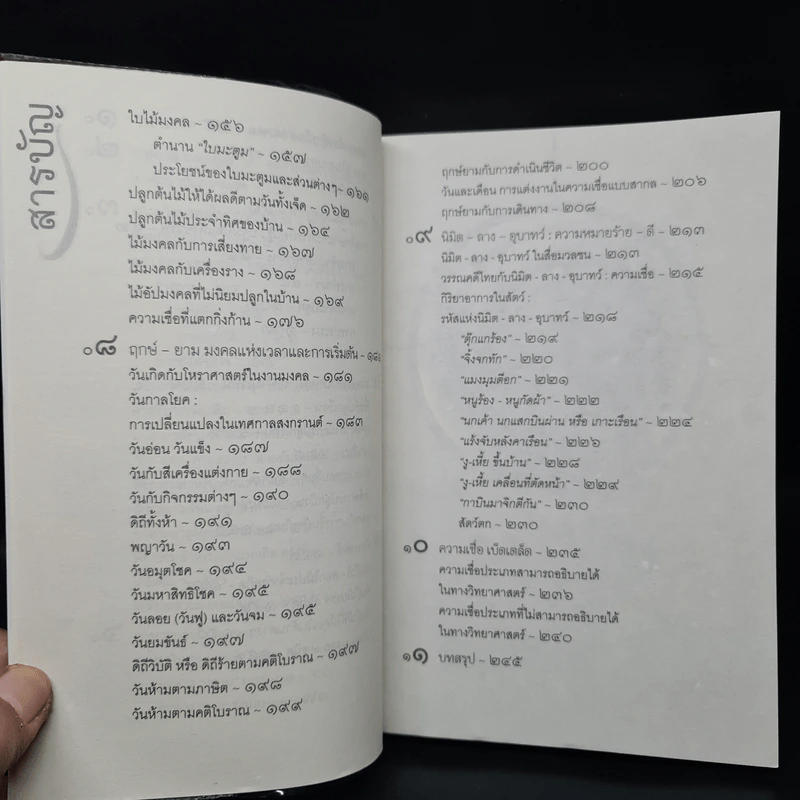 สารบัญ
ใบไม้มงคล ~ ๑๕๖
ตำนาน "ใบมะตูม" ~ ๑๕๗
ประโยชน์ของใบมะตูมและส่วนต่างๆ~ ๑๖๑
ปลูกต้นไม้ให้ได้ผลดีตามวันทั้งเจ็ด ~ ๑๖๒
ปลูกต้นไม้ประจำทิศของบ้าน ~ ๑๖๔
ไม้มงคลกับการเสี่ยงทาย ~ ๑๖๗
ไม้มงคลกับเครื่องราง ~ ๑๖๘
ไม้อัปมงคลที่ไม่นิยมปลูกในบ้าน ~ ๑๖๙
ความเชื่อที่แตกกิ่งก้าน ~ ๑๗๖
๐๘ ฤกษ์ – ยาม มงคลแห่งเวลาและการเริ่มต้น ~ ๑๘๑
วันเกิดกับโหราศาสตร์ในงานมงคล ~ ๑๘๑
วันกาลโยค :
การเปลี่ยนแปลงในเทศกาลสงกรานต์ ~ ๑๘๓
วันอ่อน วันแข็ง ~ ๑๘๗
วันกับสีเครื่องแต่งกาย ~ ๑๘๘
วันกับกิจกรรมต่างๆ ~ ๑๙๐
ดิถีทั้งห้า ~ ๑๙๑
พญาวัน ~ ๑๙๓
วันอมุตโชค ~ ๑๙๔
วันมหาสิทธิโชค ~ ๑๙๕
วันลอย (วันฟู) และวันจม ~ ๑๙๕
วันยมขันธ์ ~ ๑๙๗
ดิถีวิบัติ หรือ ดิถีร้ายตามคติโบราณ ~ ๑๙๗
วันห้ามตามภาษิต ~ ๑๙๘
วันห้ามตามคติโบราณ ~ ๑๙๙
ฤกษ์ยามกับการดำเนินชีวิต ~ ๒๐๐
วันและเดือน การแต่งงานในความเชื่อแบบสากล ~ ๒๐๖
ฤกษ์ยามกับการเดินทาง ~ ๒๐๘
๐๙ นิมิต – ลาง – อุบาทว์ : ความหมายร้าย – ดี ~ ๒๑๓
นิมิต – ลาง – อุบาทว์ ในสื่อมวลชน ~ ๒๑๓
วรรณคดีไทยกับนิมิต – ลาง – อุบาทว์ : ความเชื่อ ~ ๒๑๕
กิริยาอาการในสัตว์ :
รหัสแห่งนิมิต - ลาง - อุบาทว์ ~ ๒๑๘
"ตุ๊กแกร้อง" ~ ๒๑๙
"จิ้งจกทัก" ~ ๒๒๐
"แมงมุมตีอก" ~ ๒๒๑
"หนูร้อง - หนูกัดผ้า" ~ ๒๒๒
"นกเค้า นกแสกบินผ่าน หรือ เกาะเรือน" ~ ๒๒๔
"แร้งจับหลังคาเรือน" ~ ๒๒๖
"งู-เหี้ย ขึ้นบ้าน" ~ ๒๒๘
"งู-เหี้ย เคลื่อนที่ตัดหน้า" ~ ๒๒๙
"กาบินมาจิกตีกัน" ~ ๒๓๐
สัตว์ตก ~ ๒๓๐
๑๐ ความเชื่อ เบ็ดเตล็ด ~ ๒๓๕
ความเชื่อประเภทสามารถอธิบายได้
ในทางวิทยาศาสตร์ ~ ๒๓๖
ความเชื่อประเภทที่ไม่สามารถอธิบายได้
ในทางวิทยาศาสตร์ ~ ๒๔๐
๑๑ บทสรุป ~ ๒๔๕